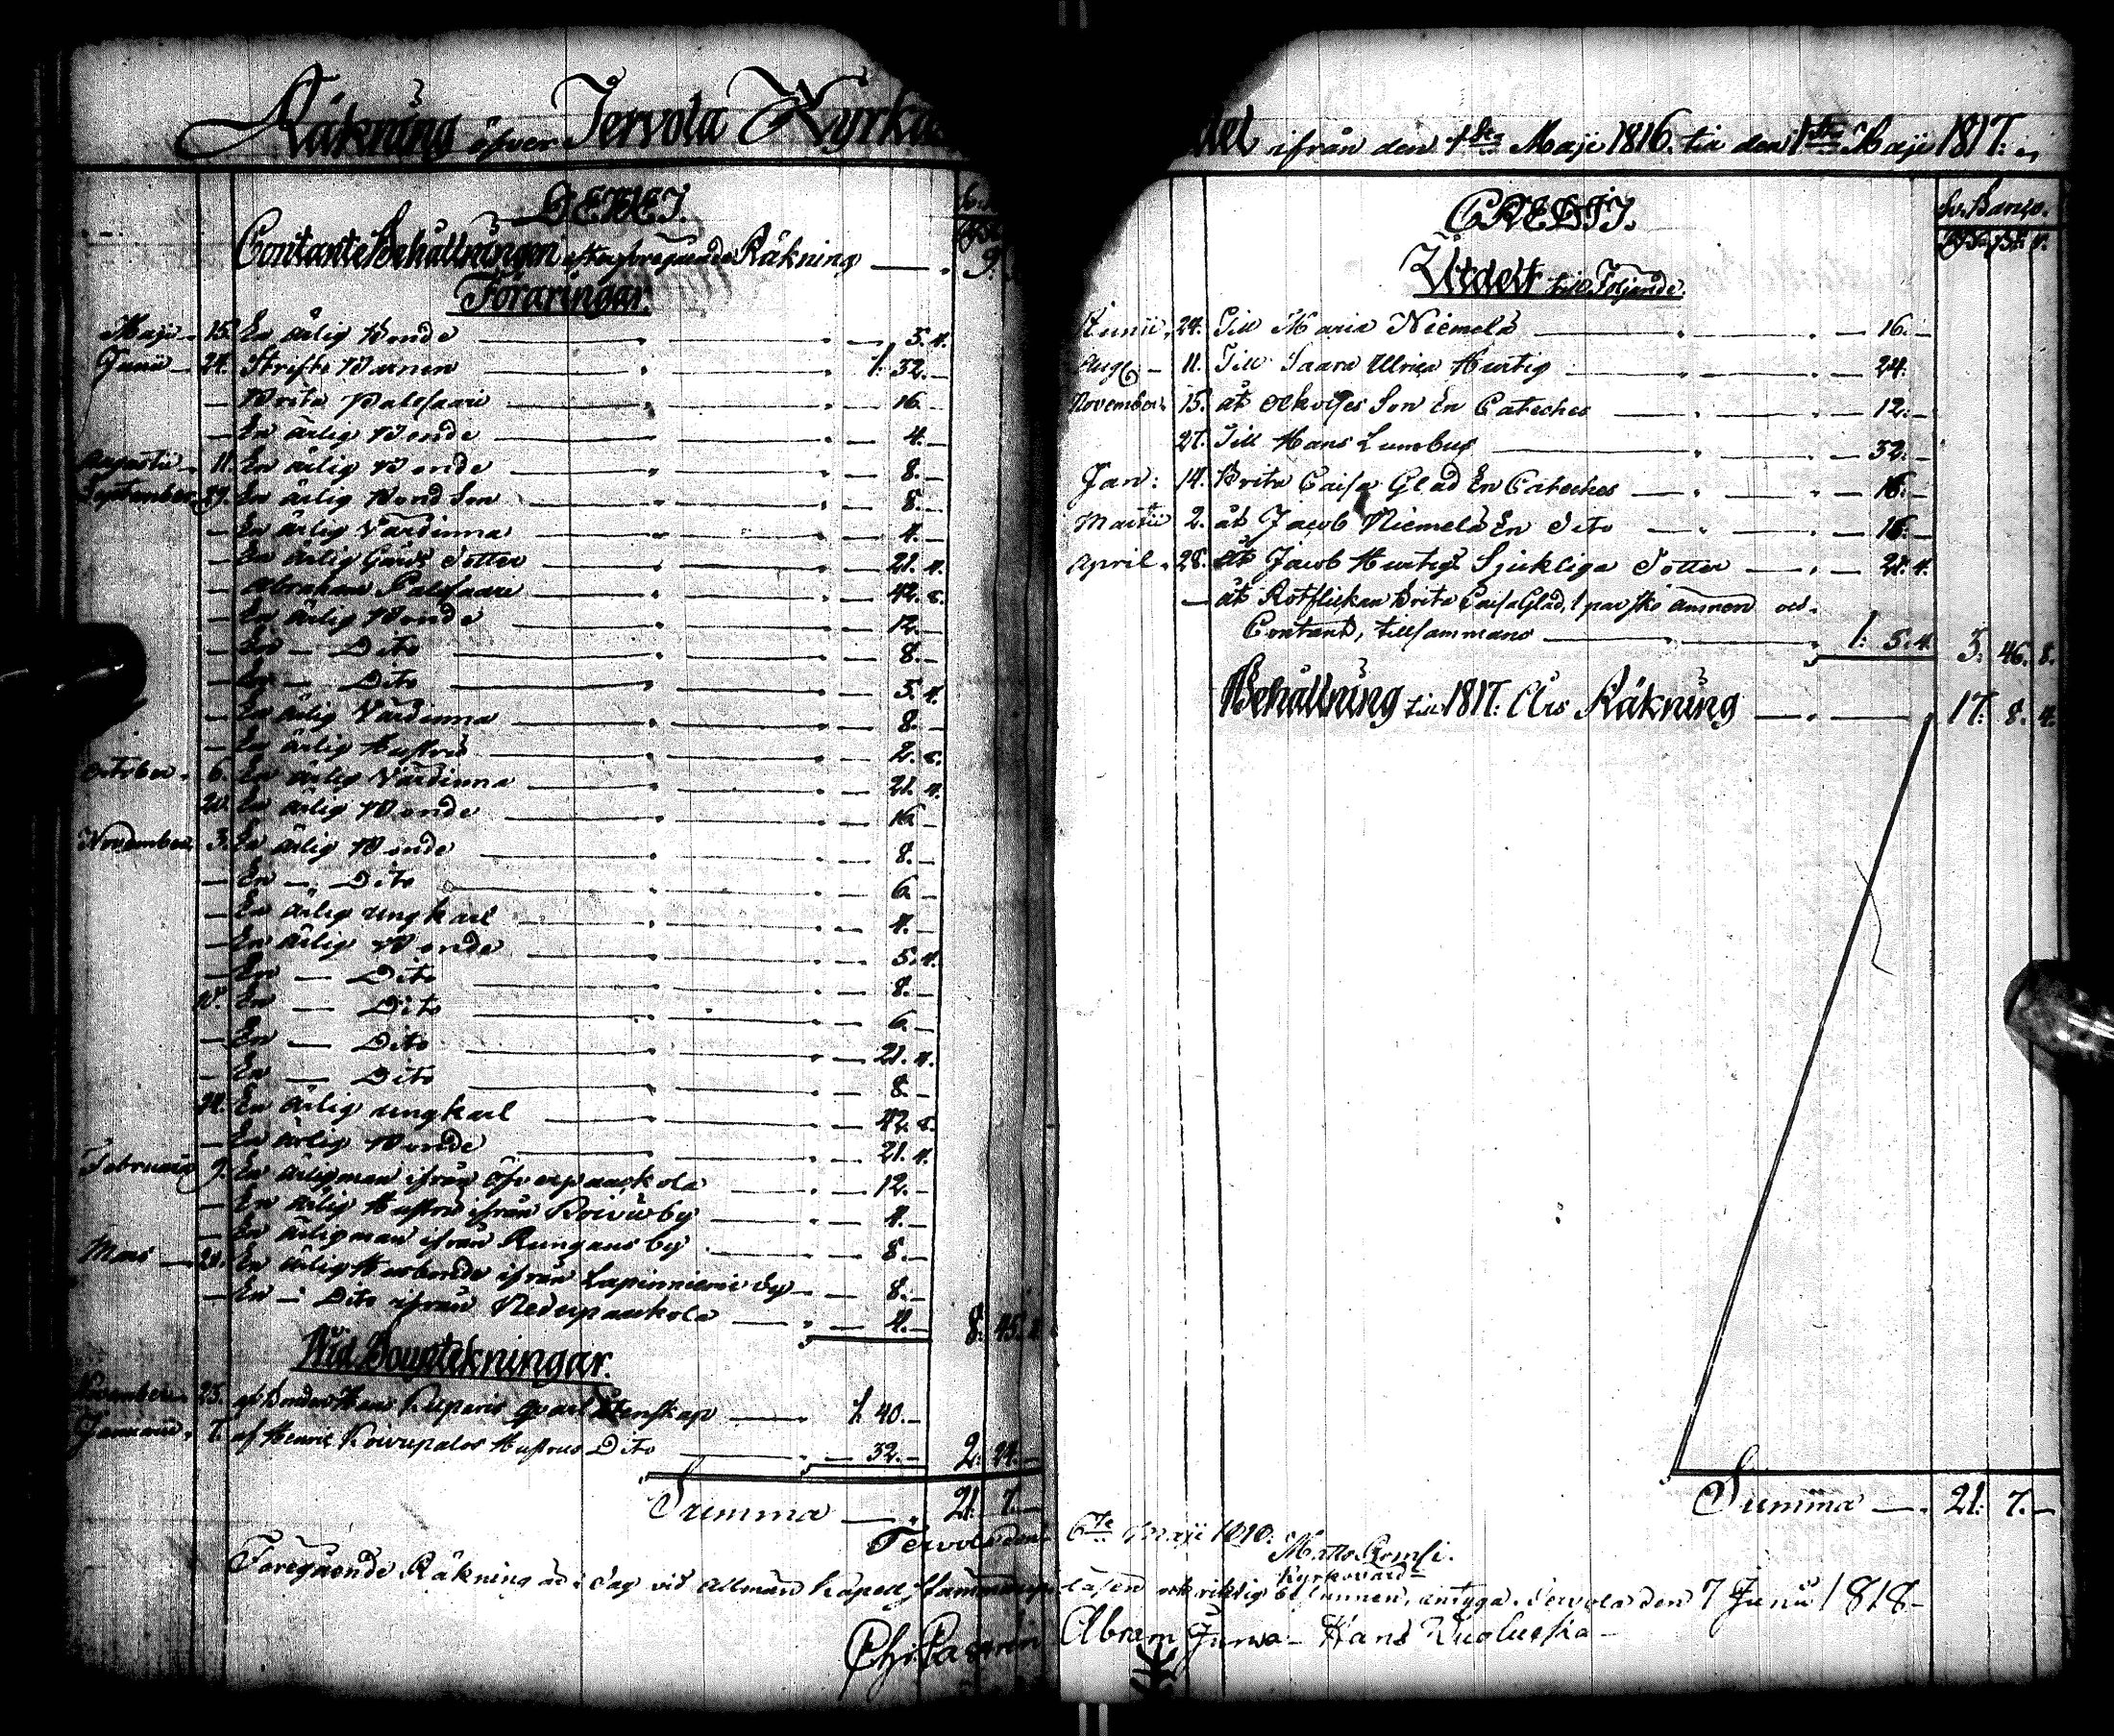 Räkning öfver Tervola Kyrka
DEBET.
Contante Behållningen efter föregående Räkning — 9.
Föräringar.
Maji — 15. En ärlig Bonde — 5. 4.
Junii — 24. Skrifte Barnen — 1. 32. —
— Brita Palosaari — 16. —
— En ärlig Bonde — 4. —
Augusti — 11. En ärlig Bonde — 8. —
September 29. En ärlig Bond Son — 8. —
— En ärlig Värdinna — 4. —
— En ärlig Gårds Dotter — 21. 4.
— Abraham Palosaari — 42. 8.
— En ärlig Bonde — 12. —
— En — Dito — 8. —
— En — Dito — 5. 4.
— En ärlig Värdinna — 8. —
— En ärlig Hustru — 2. 8.
October. 6. En ärlig Värdinna — 21. 4.
20. En ärlig Bonde — 16 —
November 3. En ärlig Bonde — 8. —
— En — Dito — 6 —
— En ärlig ungkarl — 4. —
— En ärlig Bonde — 5. 4.
— En — Dito — 8. —
En — Dito — 6. —
— En — Dito — 21. 4.
— En — Dito — 8. —
24. En ärlig ungkarl — 42. 8.
— En ärlig Bonde — 21. 4.
Februarii 9. En ärlig man ifrån Öfverpaakola — 12. —
— En ärlig Hustru ifrån Koivuby — 4. —
— En ärlig man ifrån Rungaus by — 8. —
Mars — En ärlig Husbonde ifrån Lapinniemi by — 8. —
— En — Dito ifrån Nederpaakola — 4. — 8. 45. 4.
Vid Bouptekningar.
November 25. af Bonden Hans Kuparis qvarlåtenskap — 1. 40. —
Januarii. 7. af Henric Koivupalos Hustrus Dito — 32. — 2. 24. —
Summa — 21. 7. —
Tervola den
Föregående Räkning är i dag vid Allmän Kapell Stämma
Ch: Pa
del ifrån den 1sta Maji 1816. till den 1sta Maji 1817.
CREDIT.
Sv. Banco.
Utdelt till Följande.
Junii, 24. Till Maria Niemelä — 16. —
Aug: — 11. Till Saara Ulrica Hurtig — 24.
November. 15. åt Son En Cateches — 12. —
27. Till Hans Lumbus — 32. —
Jan: 14. Brita Caisa Glad En Cateches — 16. —
Martii 2. åt Jacob Niemelä En Dito — 16. —
April. 28. åt Jacob Hurtigs Sjukliga Dotter — 21. 4.
— åt Rotflickan Brita Caisa Glad, 1 par sko ämnen och
Contant, tillsammans — 1. 5. 4. 3. 46. 8.
Behållning till 1817. Års Räkning — 17. 8. 4.
Summa — 21. 7. —
6te Maji 1818.
Matts Romsi.
Kyrkovärd
läsen och riktig befunnen, intyga. Tervola den 7 Junii 1818 —
Abram Jurva — Hans